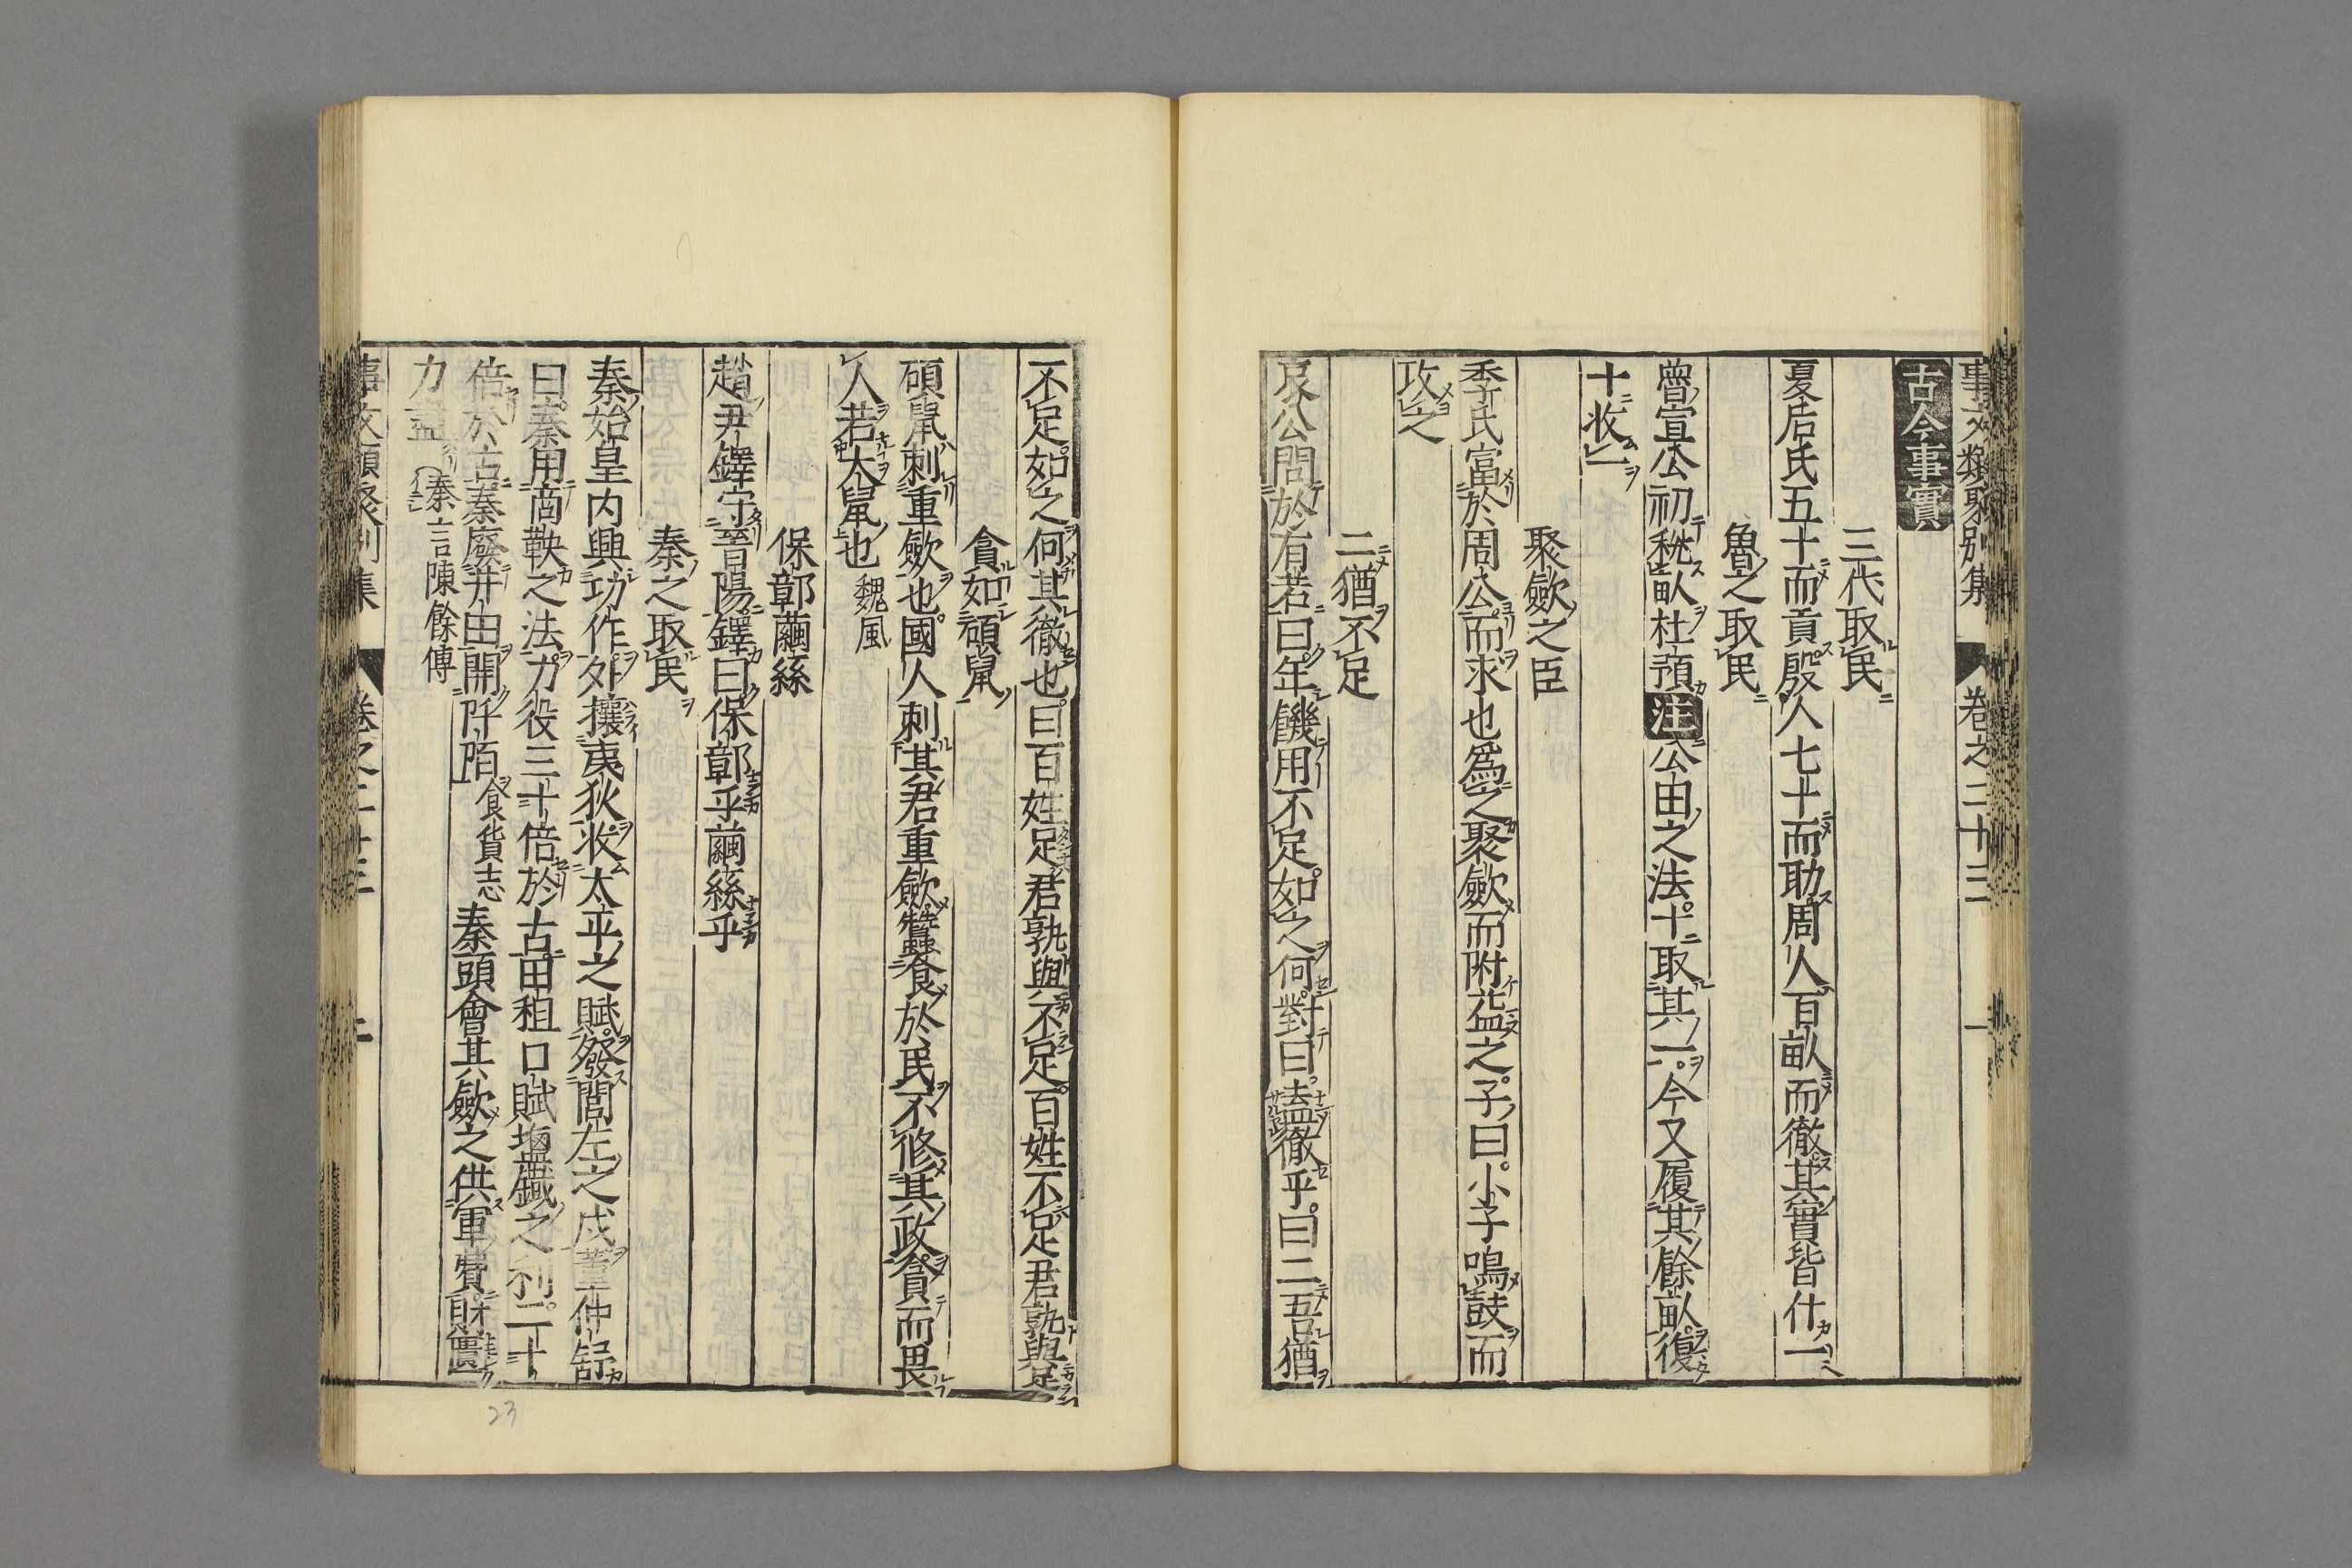 事文類聚別集 卷之二十三 一
古今事實
三代取民
夏后氏五十而貢殷人七十而助周人百畝而徹其實皆什一
魯之取民
魯宣公初稅畝杜預注公田之法十取其一。今又履其餘畝復
十收一
聚斂之臣
季氏富於周公而求也爲之聚斂而附益之。子曰。小子鳴鼓而
攻之
二猶不足
哀公問於有若曰年饑用不足。如之何。對曰。盍徹乎。曰二吾猶
不足。如之何其徹也。曰百姓足君孰與不足。百姓不足君孰與足
貪如碩鼠
碩鼠刺重斂也。國人刺其君重斂蠶食於民不修其政貪而畏
人若大鼠也 魏風
保鄣繭絲
趙尹鐸守晉陽鐸曰保鄣乎繭絲乎
秦之取民
秦始皇内興功作外攘夷狄收太平之賦發閭左之戍董仲舒
曰秦用商鞅之法力役三十倍於古田租口賦塩鐵之利二十
倍於古秦廢井田開阡陌 食貨志 秦頭會其斂之供軍費財匱
力盡 秦言陳餘傳
事文類聚別集 卷之二十三
23